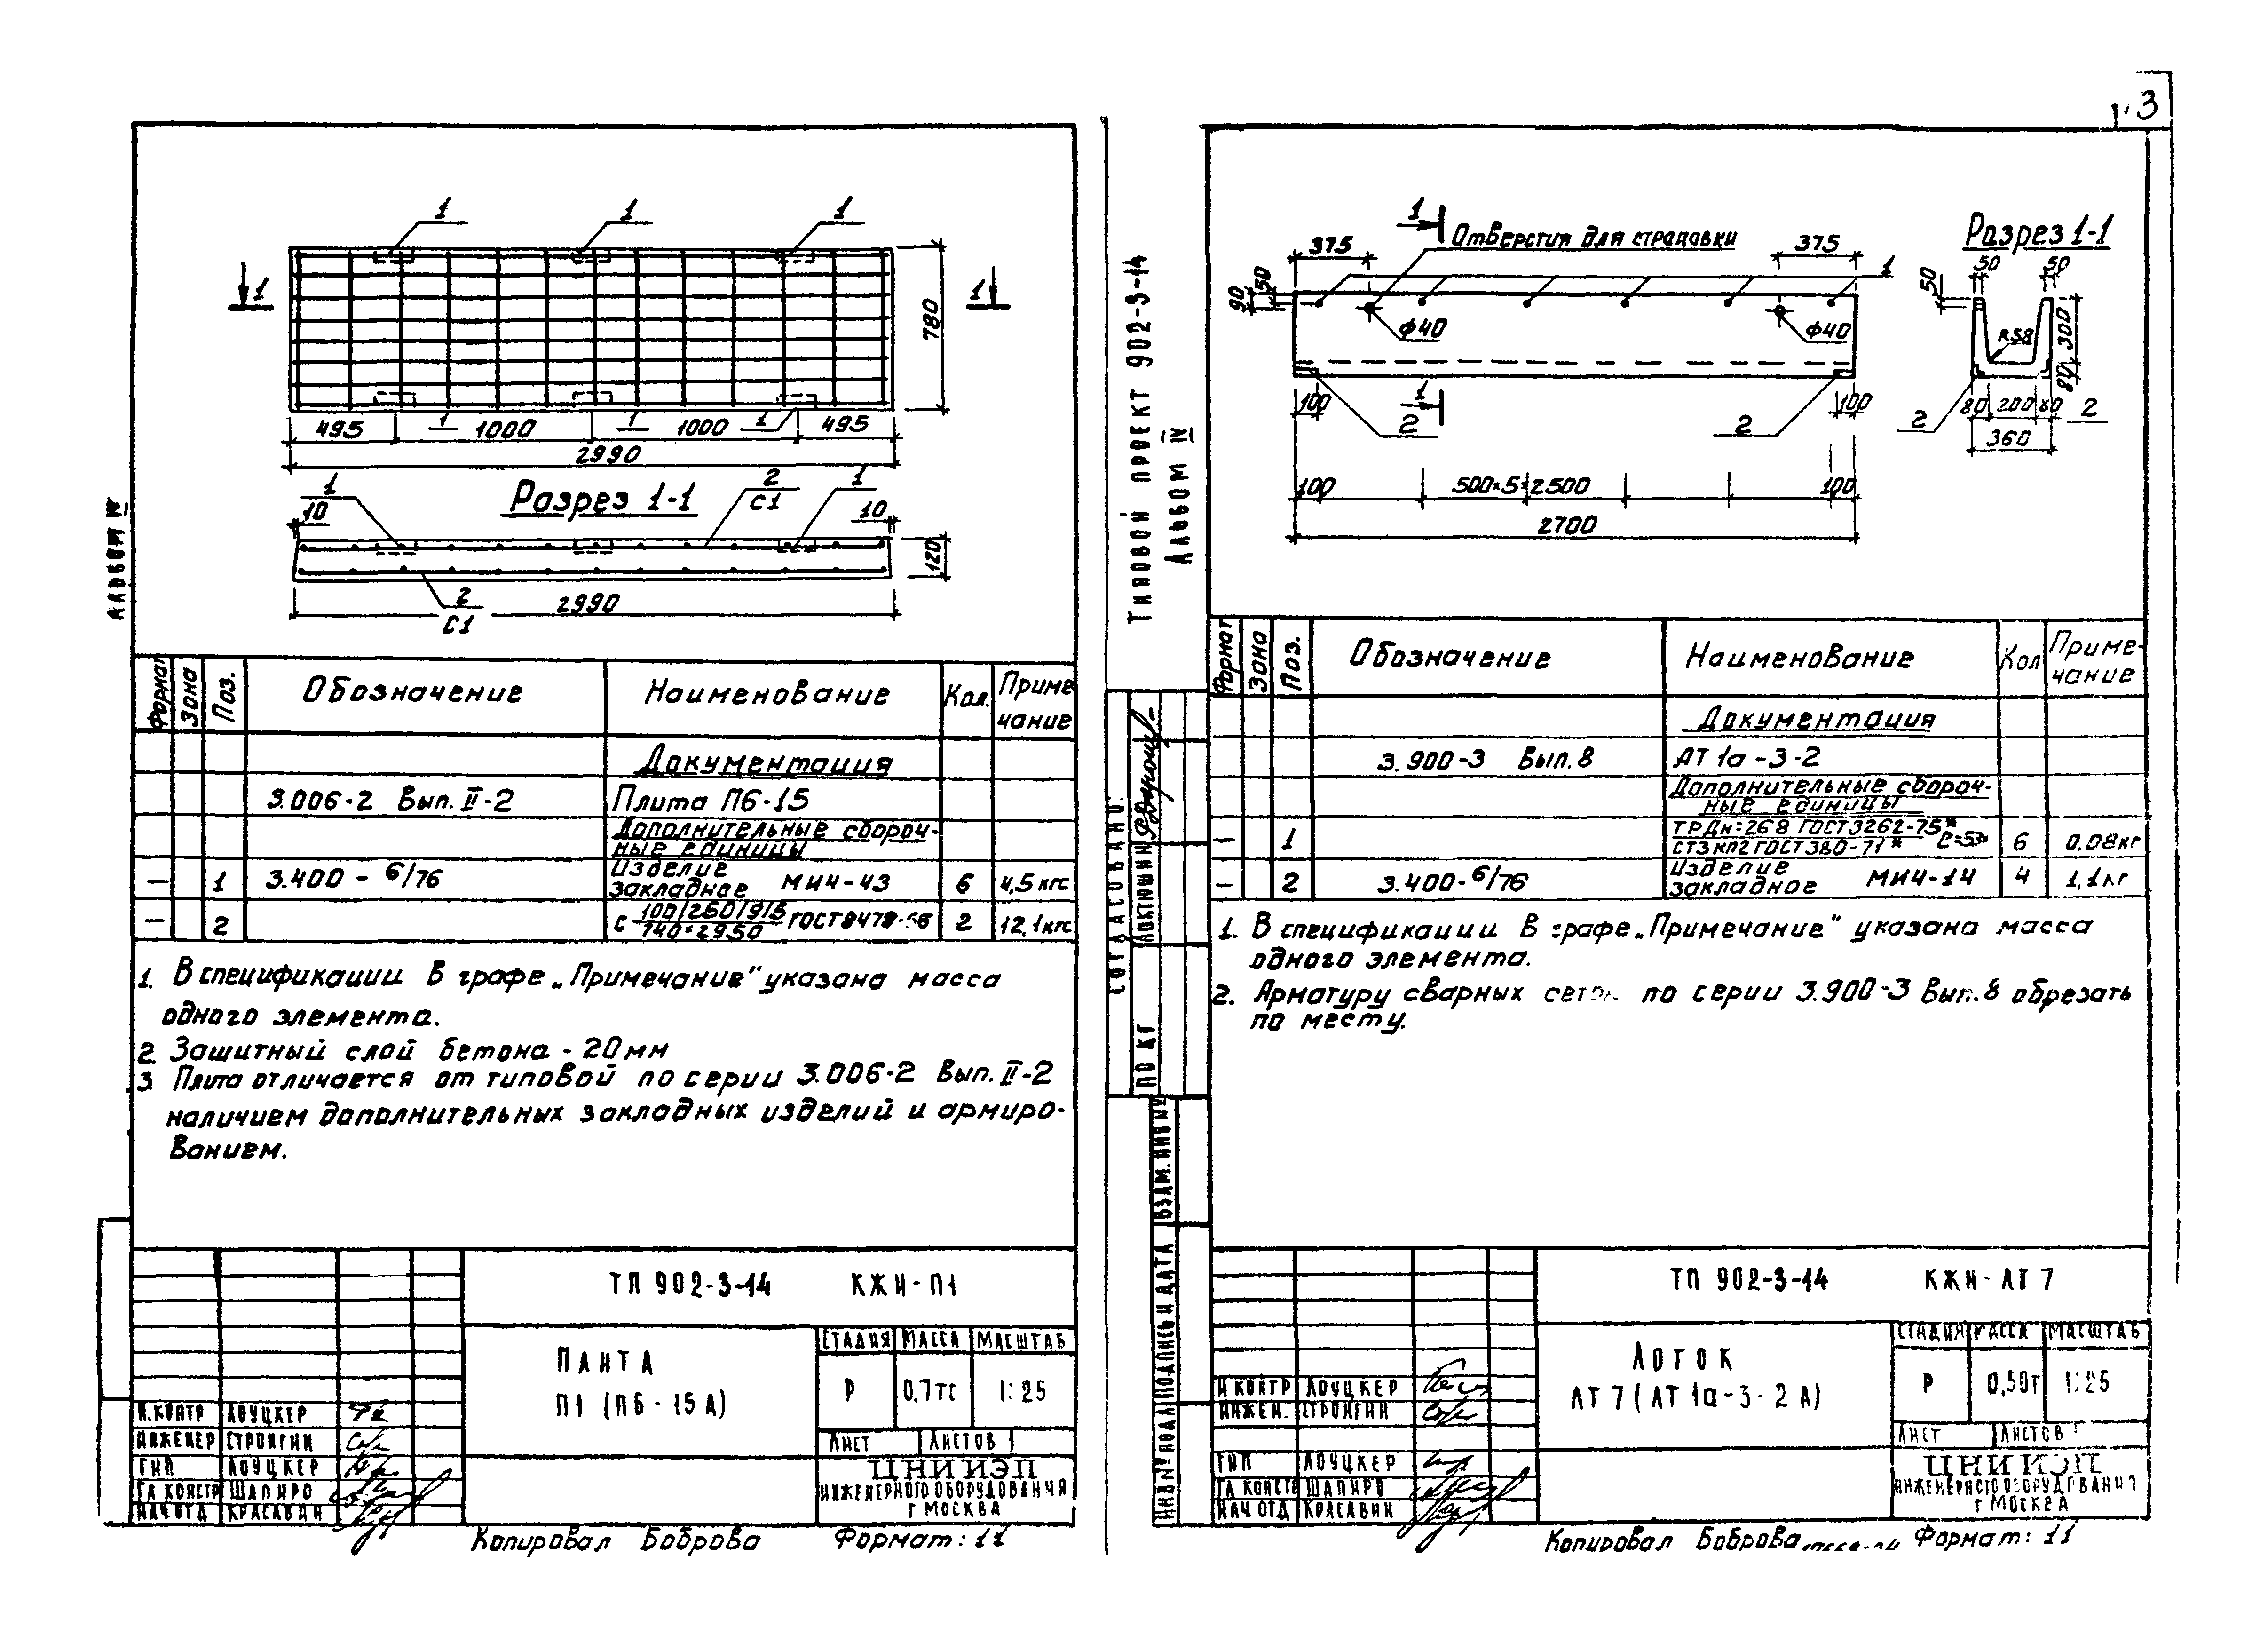 3
1
1
1
1
1
780
495
1
1000
1
1000
1
495
2990
1
Разрез 1-1
2
С1
1
10
10
120
2
С1
2990
Альбом IV
Формат
Зона
Поз.
Обозначение
Наименование
Кол.
Приме
чание
Документация
3.006-2 Вып. II-2
Плита П6-15
Дополнительные сбороч-
ные единицы
— 1 3.400 - 6/76 Изделие закладное МИ4-43 6 4,5 кгс
— 2 2 12,1 кгс
1. В спецификации в графе „Примечание" указана масса
одного элемента.
2. Защитный слой бетона - 20мм
3. Плита отличается от типовой по серии 3.006-2 Вып. II-2
наличием дополнительных закладных изделий и армиро-
ванием.
ТП 902-3-14 КЖИ-П1
Плита
П1 (П6-15А)
Стадия Масса Масштаб
Р 0,7тс 1:25
Лист Листов 1
Н.контр Лоуцкер
Инженер Стронгин
ГИП Лоуцкер
Гл констр Шапиро
Нач отд Красавин
ЦНИИЭП
инженерного оборудования
г Москва
Копировал Боброва Формат: 11
Типовой проект 902-3-14
Альбом IV
Согласовано:
Локтюшин
ПО КГ
Взам. инв №
Подпись и дата
Инв № подл
1
Отверстия для строповки
375
375
1
50
90
ф40
ф40
100
2
1
2
100
100
500×5=2500
100
2700
Разрез 1-1
50
50
50
R58
300
80
2
80
200
80
2
360
Формат
Зона
Поз.
Обозначение
Наименование
Кол
Приме-
чание
Документация
3.900-3 Вып. 8 ЛТ 1а-3-2
Дополнительные сбороч-
ные единицы
— 1 ТР Дн=268 ГОСТ 3262-75* 6 0.08кг
Ст3кп2 ГОСТ 380-71*
— 2 3.400-6/76 Изделие закладное МИ4-14 4 1,1кг
1. В спецификации в графе „Примечание" указана масса
одного элемента.
2. Арматуру сварных сеток по серии 3.900-3 Вып. 8 обрезать
по месту.
ТП 902-3-14 КЖИ-ЛТ 7
Лоток
ЛТ 7 (ЛТ 1а-3-2А)
Стадия Масса Масштаб
Р 0,50т 1:25
Лист Листов
Н контр Лоуцкер
Инжен. Стронгин
ГИП Лоуцкер
Гл констр Шапиро
Нач отд Красавин
ЦНИИЭП
инженерного оборудования
г Москва
Копировал Боброва Формат: 11